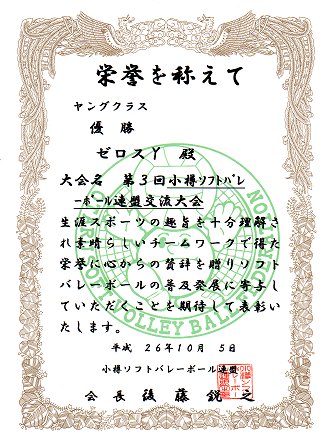 栄誉を称えて
ヤングクラス
優勝
ゼロスY 殿
大会名 第3回小樽ソフトバレ
ーボール連盟交流大会
生涯スポーツの趣旨を十分理解さ
れ素晴らしいチームワークで得た
栄誉に心からの賛辞を贈りソフト
バレーボールの普及発展に寄与し
ていただくことを期待して表彰い
たします。
平成 26年10月 5日
小樽ソフトバレーボール連盟
会長 後藤 鋭之